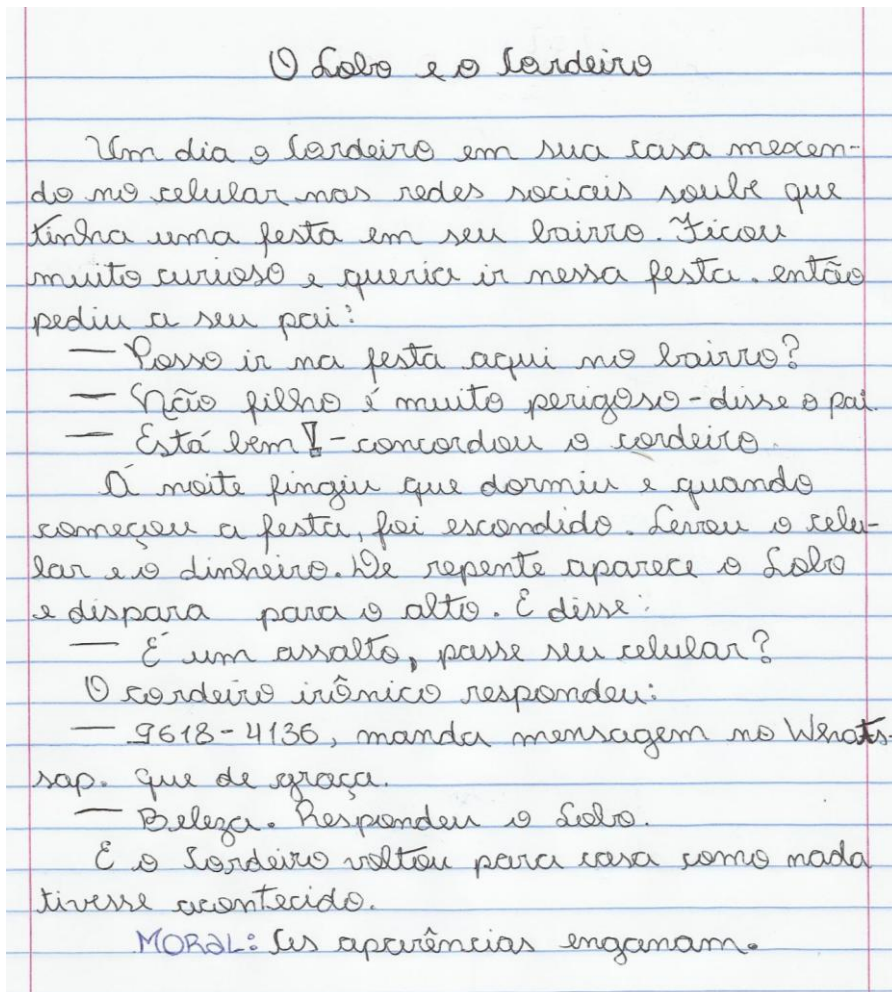 O Lobo e o Cordeiro
Um dia o Cordeiro em sua casa mexen-
do no celular nas redes sociais soube que
tinha uma festa em seu bairro. Ficou
muito curioso e queria ir nessa festa. então
pediu a seu pai:
— Posso ir na festa aqui no bairro?
— Não filho é muito perigoso - disse o pai.
— Está bem! - concordou o cordeiro.
Á noite fingiu que dormiu e quando
começou a festa, foi escondido. Levou o celu-
lar e o dinheiro. De repente aparece o Lobo
e dispara para o alto. E disse:
— É um assalto, passe seu celular?
O cordeiro irônico respondeu:
— 9618-4136, manda mensagem no Whats-
sap. que de graça.
— Beleza. Respondeu o Lobo.
E o Cordeiro voltou para casa como nada
tivesse acontecido.
MORAL: As aparências enganam.